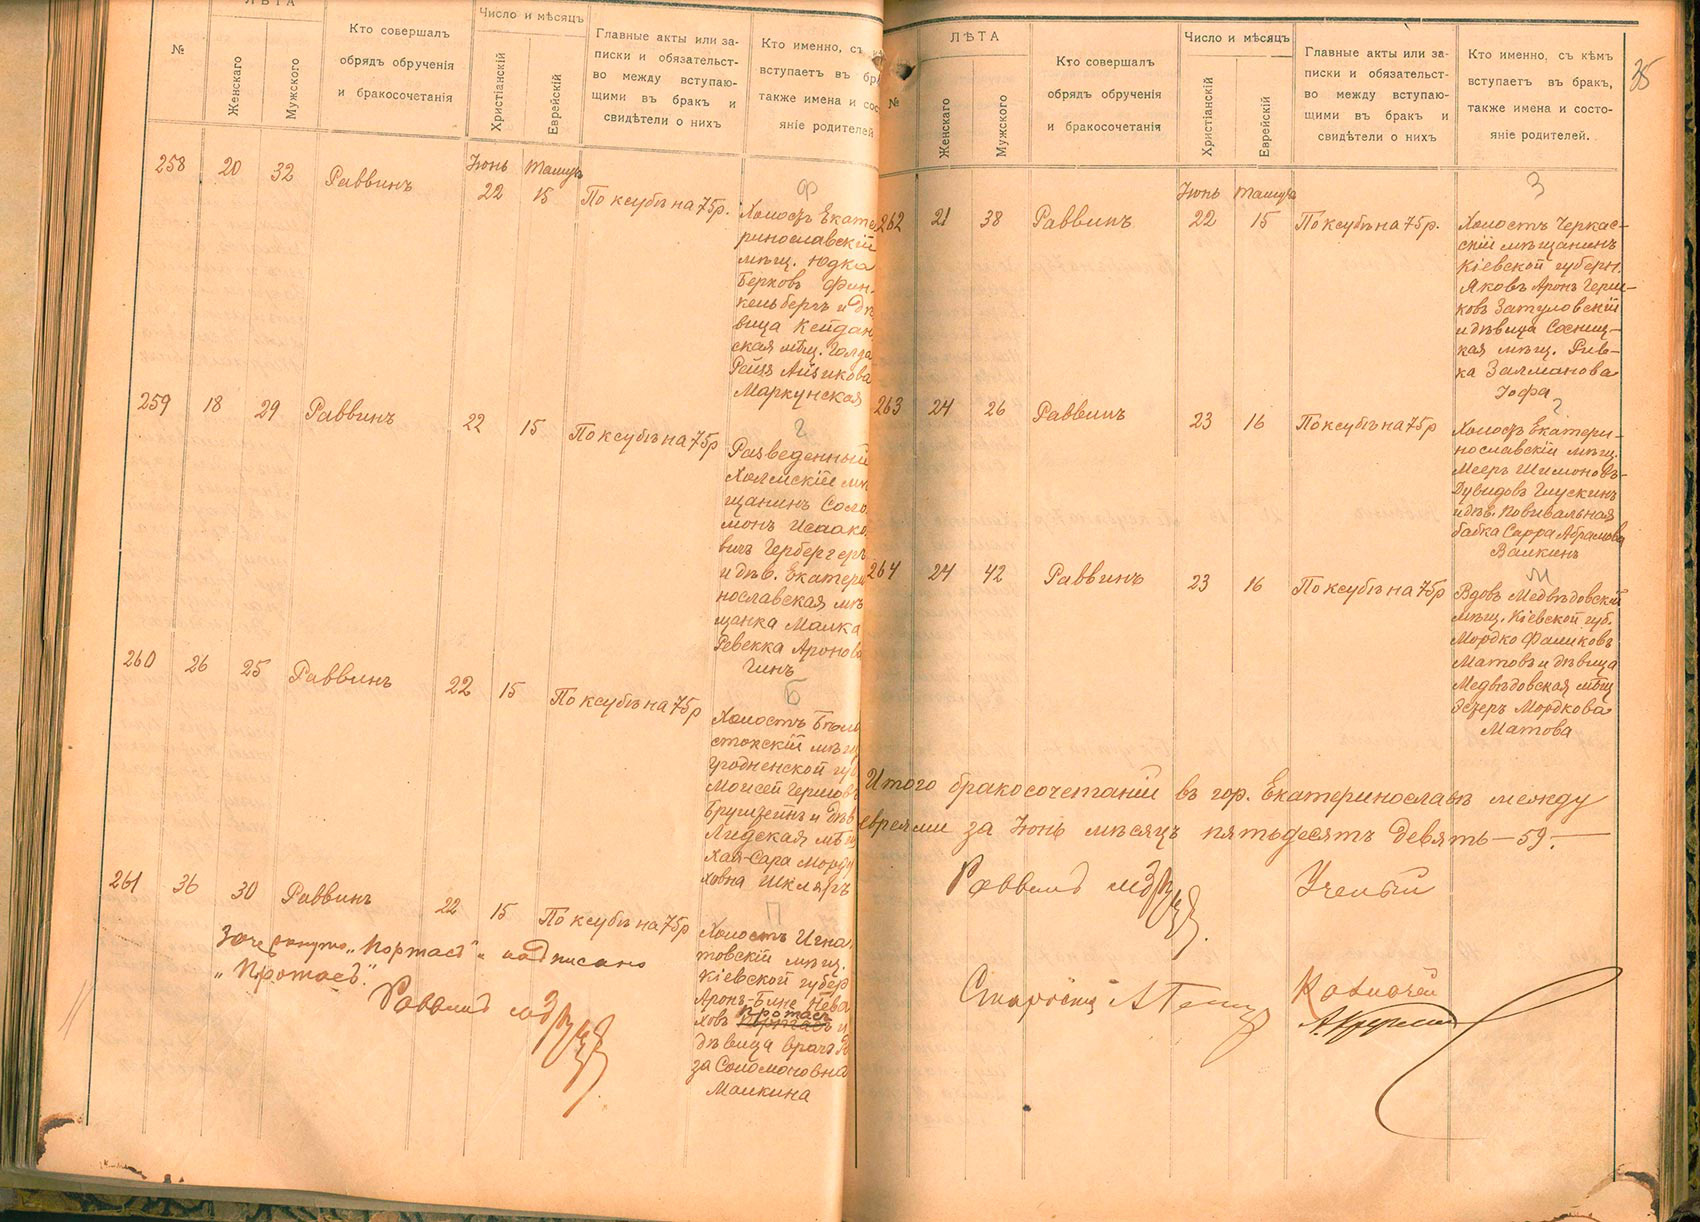 ЛѢТА
№
Женскаго
Мужского
Кто совершалъ
обрядъ обрученія
и бракосочетанія
Число и мѣсяцъ
Христіанскій
Еврейскій
Главные акты или за-
писки и обязательст-
во между вступаю-
щими въ бракъ и
свидѣтели о нихъ
Кто именно, съ кѣмъ
вступаетъ въ бра
также имена и сос
яніе родителей
258 20 32 Раввинъ Іюнь 22 Тамуз 15 По ксубѣ на 75р.
Ф
Холост Екате
ринославскій
мѣщ. Юдка
Берковъ Фин-
кельбергъ и дѣ
вица Кейдан
ская мѣщ. Голда
Рейза Айзикова
Маркунская
259 18 29 Раввинъ 22 15 По ксубѣ на 75р
Г
Разведенный
Холмскій мѣ
щанинъ Соло
монъ Исаако
вичъ Гербергеръ
и дѣв. Екатери
нославская мѣ
щанка Малка
Ревекка Аронова
Гинъ
260 26 25 Раввинъ 22 15 По ксубѣ на 75р
Б
Холостъ Бѣлы
стокскій мѣщ
Гродненской губ
Моисей Гершов
и дѣв
Лидская мѣщ
Хая-Сара Морду
ховна Шкляръ
261 36 30 Раввинъ 22 15 По ксубѣ на 75р
П
Холостъ Игна
товскій мѣщ.
Кіевской губер
Аронъ-Бине Нева
ховъ Протасъ и
дѣвица врачъ Ро
за Соломоновна
Малкина
Зачеркнуто „Портасъ" надписано
„Протасъ".
Раввинъ
35
ЛѢТА
№
Женскаго
Мужского
Кто совершалъ
обрядъ обрученія
и бракосочетанія
Число и мѣсяцъ
Христіанскій
Еврейскій
Главные акты или за-
писки и обязательст-
во между вступаю-
щими въ бракъ и
свидѣтели о нихъ
Кто именно, съ кѣмъ
вступаетъ въ бракъ,
также имена и состо-
яніе родителей.
262 21 38 Раввинъ Іюнь 22 Тамуза 15 По ксубѣ на 75р.
З
Холостъ Черкас-
скій мѣщанинъ
Кіевской губерн.
Яковъ Аронъ Герш-
ковъ Затуловскій
и дѣвица Сосниц-
кая мѣщ. Рив-
ка Залманова
Іофа
263 24 26 Раввинъ 23 16 По ксубѣ на 75р
Г
Холост Екатери-
нославскій мѣщ.
Мееръ Шимоновъ-
Дувидовъ Глускинъ
и дѣв. Повивальная
бабка Сарра Абрамова
Валкинъ
264 24 42 Раввинъ 23 16 По ксубѣ на 75р
М
Вдовъ Медвѣдовскій
мѣщ. Кіевской губ.
Мордко Фаликовъ
Матовъ и дѣвица
Медвѣдовская мѣщ
Эстеръ Мордкова
Матова
Итого бракосочетаній въ гор. Екатеринославѣ между
евреями за Іюнь мѣсяцъ пятьдесятъ девять — 59.—
Раввинъ Ученый
Староста Казначей